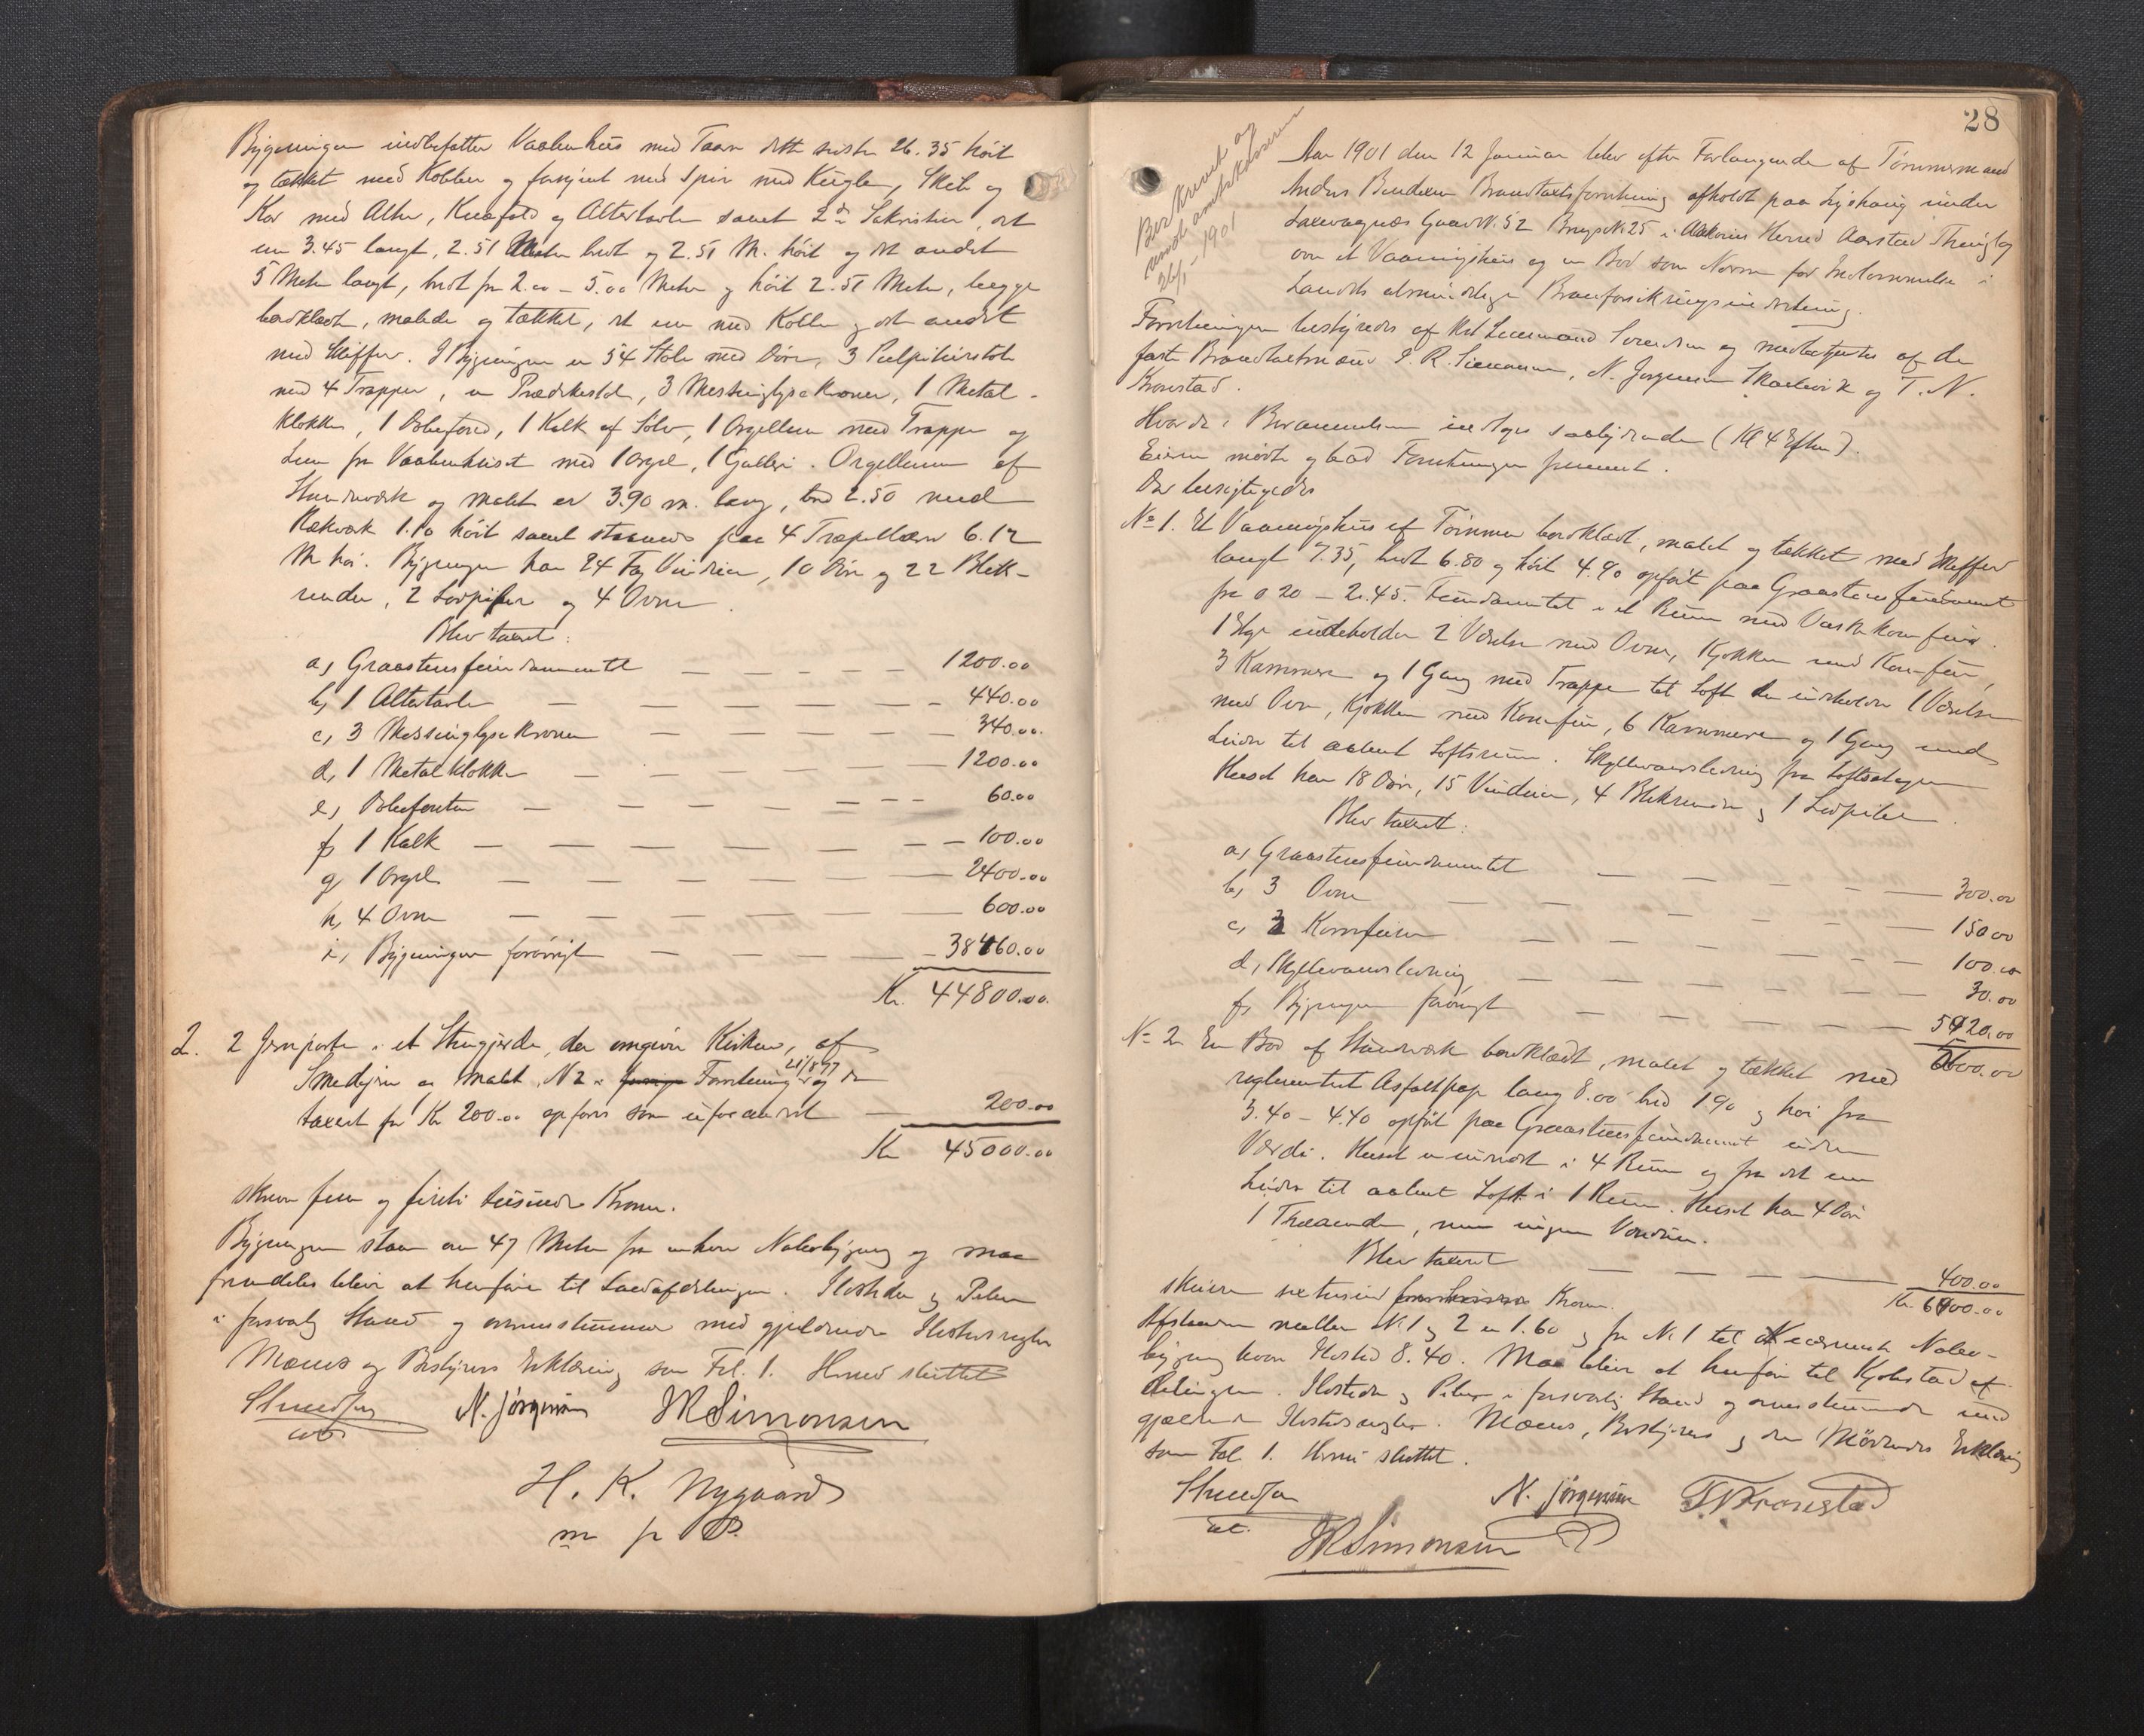 Bygningen indbefatter Vaabenhus med Taarn dette sidste 26.35 høit
og tækket med Kobber og forsynet med Spir med Kugle, Skib og
Kor med Alter, Knæfald og Altertavle samt 2de Sakristier, det
ene 3.45 langt, 2.51 Meter bredt og 2.51 M. høit og det andet
5 Meter langt, bredt fra 2.00 – 5.00 Meter og høit 2.51 Meter, begge
bordklædte, malede og tækket, det ene med Kobber og det andet
med Skiffer. I Bygningen er 54 Stole med Døre, 3 Pulpiturstole
med 4 Trapper, en Prædikestol, 3 Messinglysekroner, 1 Metal-
klokke, 1 Døbefond, 1 Kalk af Sølv, 1 Orgellem med Trappe og
Lem fra Vaabenhuset med 1 Orgel, 1 Galleri. Orgellemmen af
Stenderværk og malet er 3.90 m. lang, bred 2.50 med
Rækværk 1.10 høit samt staaende paa 4 Træpillarer 6.12
M høi. Bygningen har 24 Fag Vinduer, 10 Døre og 22 Blik-
render, 2 Lodpiber og 4 Ovne.
Blev taxeret:
a, Graastensfundamentet — — — — 1200.00
b, 1 Altertavle — — — — — 440.00
c, 3 Messinglysekroner — — — — 340.00
d, 1 Metalklokke — — — — 1200.00
e, Døbefonten — — — — — 60.00
f, 1 Kalk — — — — — 100.00
g, 1 Orgel — — — — — 2400.00
h, 4 Ovne — — — — 600.00
i, Bygningen forøvrigt — — — 38460.00
Kr. 44800.00.
2. 2 Jernporte i et Stengjærde, der omgiver Kirken, af
Smedejern og malet, N 2 i Forretning 21/8 97 og der
taxeret for Kr 200.00 opføres som uforandret — 200.00
Kr 45000.00
skriver fem og firti tusinde Kroner.
Bygningen staar over 47 Meter fra enhver Nabobygning og maa
fremdeles blive at henføre til Landafdelingen. Ildsteder og Piber
i forsvarlig Stand og overensstemmende med gjældende Ildstedsregler
Mænds og Bestyrers Erklæring som Fol. 1. Hermed sluttet
N. Jørgensen JRSimonsen
H. K. Nygaard
m p P.
28
Berkreret og
26/1 – 1901
Aar 1901 den 12 Januar blev efter Forlangende af Tømmermand
Anders Bendixen Brandtaxtforretning afholdt paa Lyshaug under
Laxevaagnæs Gaards N. 52 Brugs N. 25 i Askøens Herred Aarstad Thinglag
over et Vaaningshus og en Bod som Norm for Indlemmelse i
Landets almindelige Brandforsikringsindretning.
Forretningen bestyredes af Kst Lensmand Svendsen og medbetjentes af de
faste Brandtaxtmænd J. R. Simonsen, N. Jørgensen Skaalevik og T. N.
Kronstad.
Hvorda i Berammelsen indtoges saalydende (Kl 4 Efterm).
Eieren mødte og bad Forretningen fremmet.
Der besigtigedes
No 1. Et Vaaningshus af Tømmer bordklædt, malet og tækket med Skiffer
langt 7.35, bredt 6.80 og høit 4.90 opført paa Graastensfundament
fra 0 20 – 2.45. Fundamentet i et Rum med Vaskekomfur.
1 Etage indeholder 2 Værelser med Ovne, Kjøkken med Komfur,
3 Kammere og 1 Gang med Trappe til Loft der indeholder 1 Værelse
med Ovn, Kjøkken med Komfur, 6 Kammere og 1 Gang med
Luge til aabent Loftsrum. Skyllevandsledning fra Loftsetagen
Huset har 18 Døre, 15 Vinduer, 4 Blikrender og 1 Lodpibe.
Blev taxeret:
a, Graastensfundamentet — — — — 300.00
b, 3 Ovne — — — — 150 00
c, 3 Komfurer — — — — 100.00
d, Skyllevandsledning — — — — 30.00
f, Bygningen forøvrigt — — — — 5020.00
5600.00
No 2 En Bod af Stenderværk bordklædt, malet og tækket med
reglementeret Asfaltpap lang 8.00 bred 1 90 og høi fra
3.40 – 4.40 opført paa Graastensfundament uden
Værdi. Huset er indredet i 4 Rum og fra det ene
Luge til aabent Loft i 1 Rum. Huset har 4 Døre
1 Trærende, men ingen Vinduer.
Blev taxeret — — — — 400.00
Kr. 6000.00
skriver sextusind Kroner.
Afstanden mellem N. 1 og 2 er 1.60 og fra N. 1 til nærmeste Nabo-
bygning hvori Ildsted 8.40. Maa blive at henføre til Kjøbstadaf-
delingen. Ildsteder og Piber i forsvarlig Stand og overensstemmende med
gjældende Ildstedsregler. Mænds, Bestyrers og den Mødendes Erklæring
som Fol. 1. Hermed sluttet.
N. Jørgensen TNKronstad
JRSimonsen